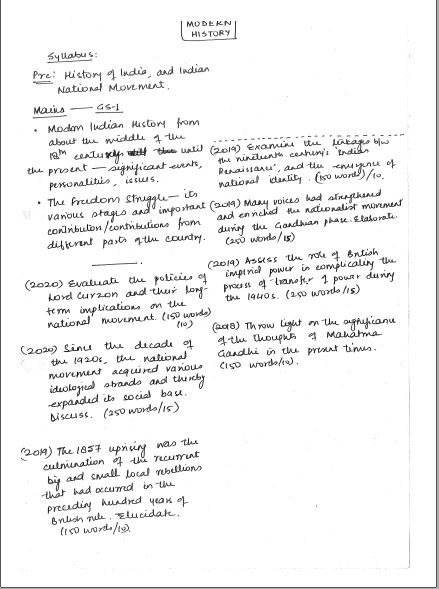 MODERN
HISTORY
Syllabus:
Pre: History of India, and Indian
National Movement.
Mains — GS-1
• Modern Indian History from
about the middle of the
18th century until
the present — significant events,
personalities, issues.
• The Freedom Struggle — its
various stages and important
contributors/contributions from
different parts of the country.
(2020) Evaluate the policies of
Lord Curzon and their long-
term implications on the
national movement. (150 words)
(10)
(2020) Since the decade of
the 1920s, the national
movement acquired various
ideological strands and thereby
expanded its social base.
Discuss. (250 words/15)
(2019) The 1857 uprising was the
culmination of the recurrent
big and small local rebellions
that had occurred in the
preceding hundred years of
British rule. Elucidate.
(150 words/10)
(2019) Examine the linkages b/w
the nineteenth century's 'Indian
Renaissance', and the emergence of
national identity. (150 word)/10.
(2019) Many voices had strengthened
and enriched the nationalist movement
during the Gandhian phase. Elaborate.
(250 words/15)
(2019) Assess the role of British
imperial power in complicating the
process of transfer of power during
the 1940s. (250 words/15)
(2018) Throw light on the significance
of the thoughts of Mahatma
Gandhi in the present times.
(150 words/10).